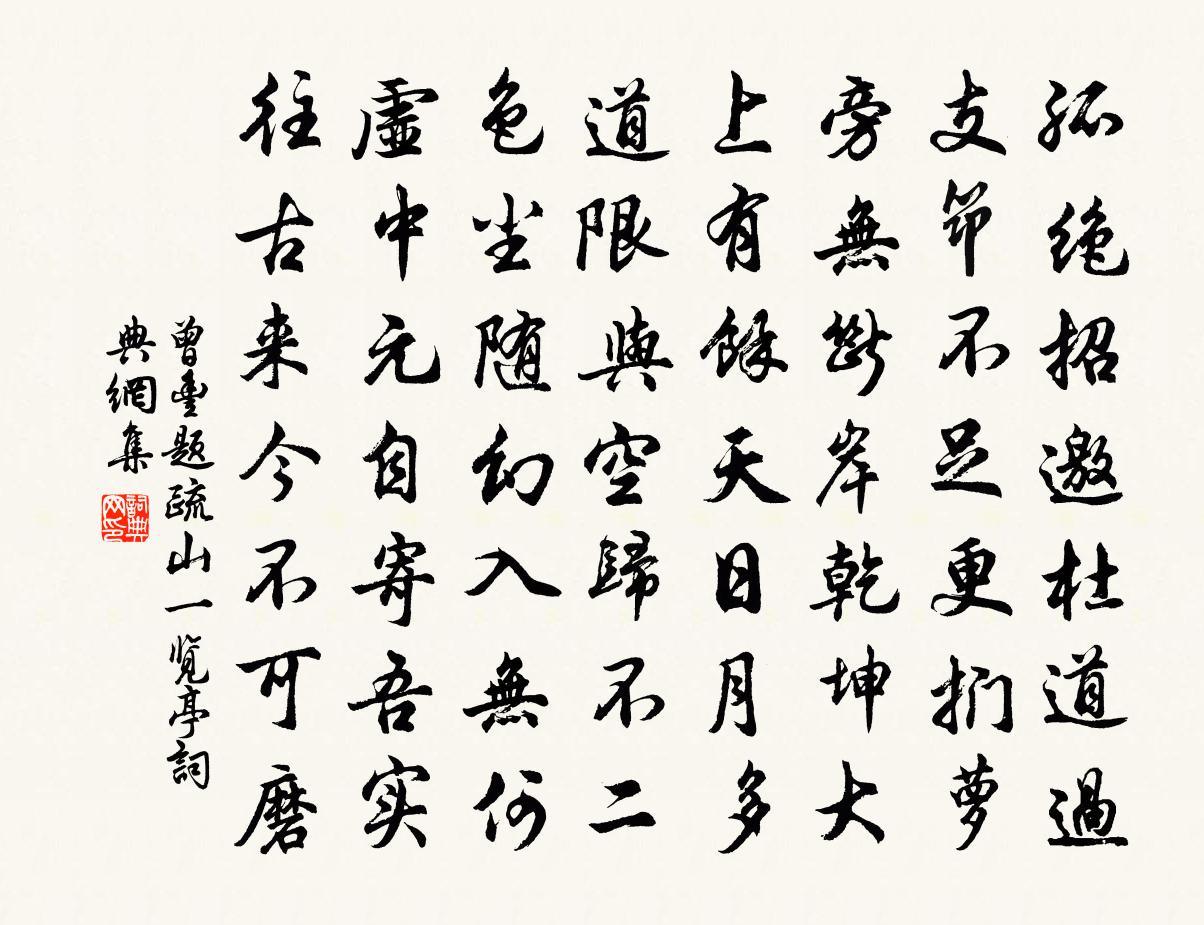 孤绝招邀杜道過
支笻不足更捫萝
旁無斷岸乾坤大
上有餘天日月多
道限與空歸不二
色尘随幻入無何
虛中元自寄吾实
往古来今不可磨
曾豐题疏山一览亭詞
典網集
詞典网印